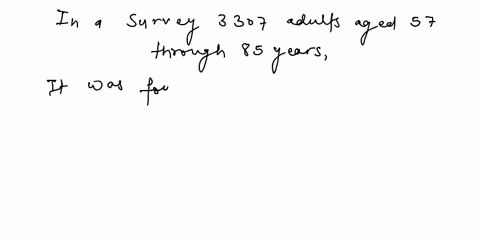 In a Survey 3307 adults aged 57
through 85 years,
It was fou